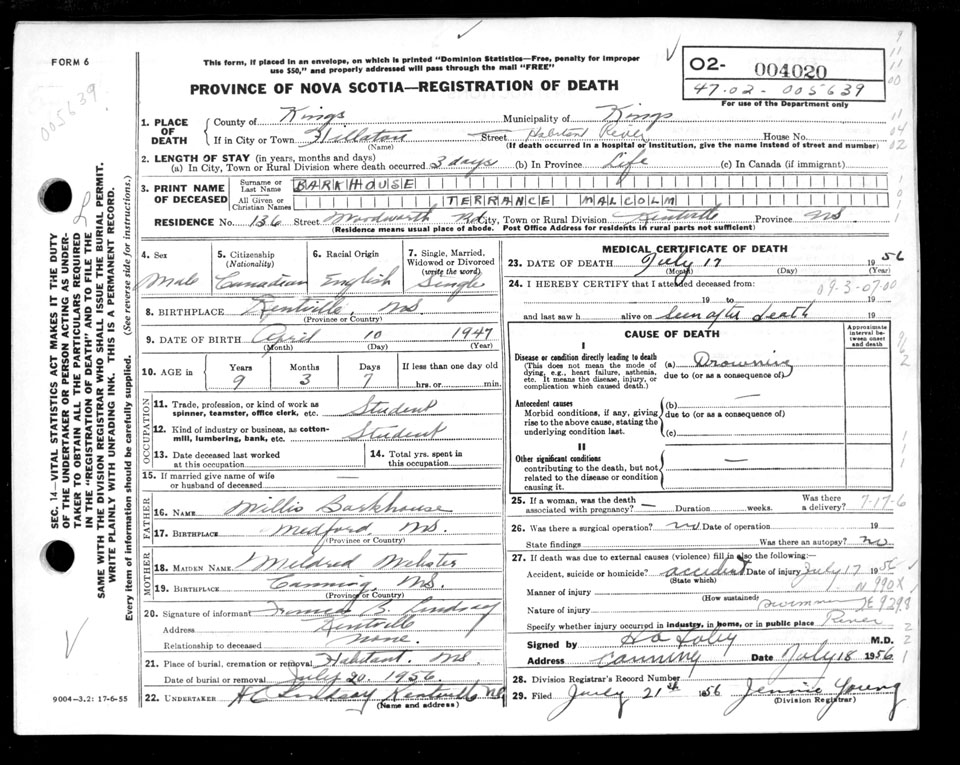 FORM 6
This form, if placed in an envelope, on which is printed "Dominion Statistics—Free, penalty for improper
use $50," and properly addressed will pass through the mail "FREE"
PROVINCE OF NOVA SCOTIA—REGISTRATION OF DEATH
02- 004020
47.02 - 005639
For use of the Department only
005639
SEC. 14—VITAL STATISTICS ACT MAKES IT THE DUTY
OF THE UNDERTAKER OR PERSON ACTING AS UNDER-
TAKER TO OBTAIN ALL THE PARTICULARS REQUIRED
IN THE "REGISTRATION OF DEATH" AND TO FILE THE
SAME WITH THE DIVISION REGISTRAR WHO SHALL ISSUE THE BURIAL PERMIT.
WRITE PLAINLY WITH UNFADING INK. THIS IS A PERMANENT RECORD.
Every item of information should be carefully supplied. (See reverse side for instructions.)
1. PLACE OF DEATH
County of Kings Municipality of Kings
If in City or Town Hillaton Street Habitant River House No.
(Name) (If death occurred in a hospital or institution, give the name instead of street and number)
2. LENGTH OF STAY (in years, months and days)
(a) In City, Town or Rural Division where death occurred 3 days (b) In Province Life (c) In Canada (if immigrant)
3. PRINT NAME OF DECEASED
Surname or Last Name BARKHOUSE
All Given or Christian Names TERRANCE MALCOLM
RESIDENCE No. 136 Street Woodworth Rd City, Town or Rural Division Kentville Province NS.
(Residence means usual place of abode. Post Office Address for residents in rural parts not sufficient)
4. Sex Male
5. Citizenship (Nationality) Canadian
6. Racial Origin English
7. Single, Married, Widowed or Divorced (write the word) Single
8. BIRTHPLACE Kentville, NS
(Province or Country)
9. DATE OF BIRTH April 10 1947
(Month) (Day) (Year)
10. AGE in Years Months Days If less than one day old
9 3 7 hrs. or min.
OCCUPATION
11. Trade, profession, or kind of work as
spinner, teamster, office clerk, etc. Student
12. Kind of industry or business, as cotton-
mill, lumbering, bank, etc. Student
13. Date deceased last worked
at this occupation
14. Total yrs. spent in
this occupation
15. If married give name of wife
or husband of deceased —
FATHER
16. NAME Millis Barkhouse
17. BIRTHPLACE Medford NS.
(Province or Country)
MOTHER
18. MAIDEN NAME Mildred Webster
19. BIRTHPLACE Canning NS.
(Province or Country)
20. Signature of informant Francis B. Lindsay
Address Kentville
Relationship to deceased none.
21. Place of burial, cremation or removal Habitant. NS.
Date of burial or removal July 20. 1956.
22. UNDERTAKER HC Lindsay Kentville NS
(Name and address)
9004—3.2: 17-6-55
MEDICAL CERTIFICATE OF DEATH
23. DATE OF DEATH July 17 1956
(Month) (Day) (Year)
24. I HEREBY CERTIFY that I attended deceased from:
09-3-07.00
19 to 19
and last saw h alive on seen after death 19
CAUSE OF DEATH
Approximate interval between onset and death
I
Disease or condition directly leading to death
(This does not mean the mode of
dying, e.g., heart failure, asthenia,
etc. It means the disease, injury, or
complication which caused death.)
(a) Drowning
due to (or as a consequence of)
Antecedent causes
Morbid conditions, if any, giving
rise to the above cause, stating the
underlying condition last.
(b) —
due to (or as a consequence of)
(c)
II
Other significant conditions
contributing to the death, but not
related to the disease or condition
causing it.
—
25. If a woman, was the death
associated with pregnancy? — Duration weeks. Was there a delivery? 7-17-6
26. Was there a surgical operation? no Date of operation 19
State findings Was there an autopsy? no
27. If death was due to external causes (violence) fill in also the following:
Accident, suicide or homicide? accident Date of injury July 17 1956
(State which)
Manner of injury N 990X
(How sustained)
Nature of injury E 929.8
Specify whether injury occurred in industry, in home, or in public place River
Signed by M.D.
Address Canning Date July 18 1956
28. Division Registrar's Record Number
29. Filed July 21st 1956 Jennie Young
(Division Registrar)